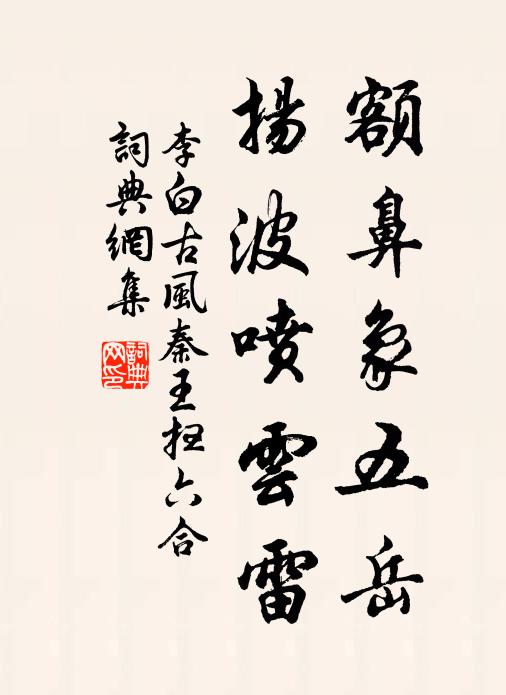 額鼻象五岳
揚波噴雲雷
李白古風秦王扫六合
詞典網集
詞典網印